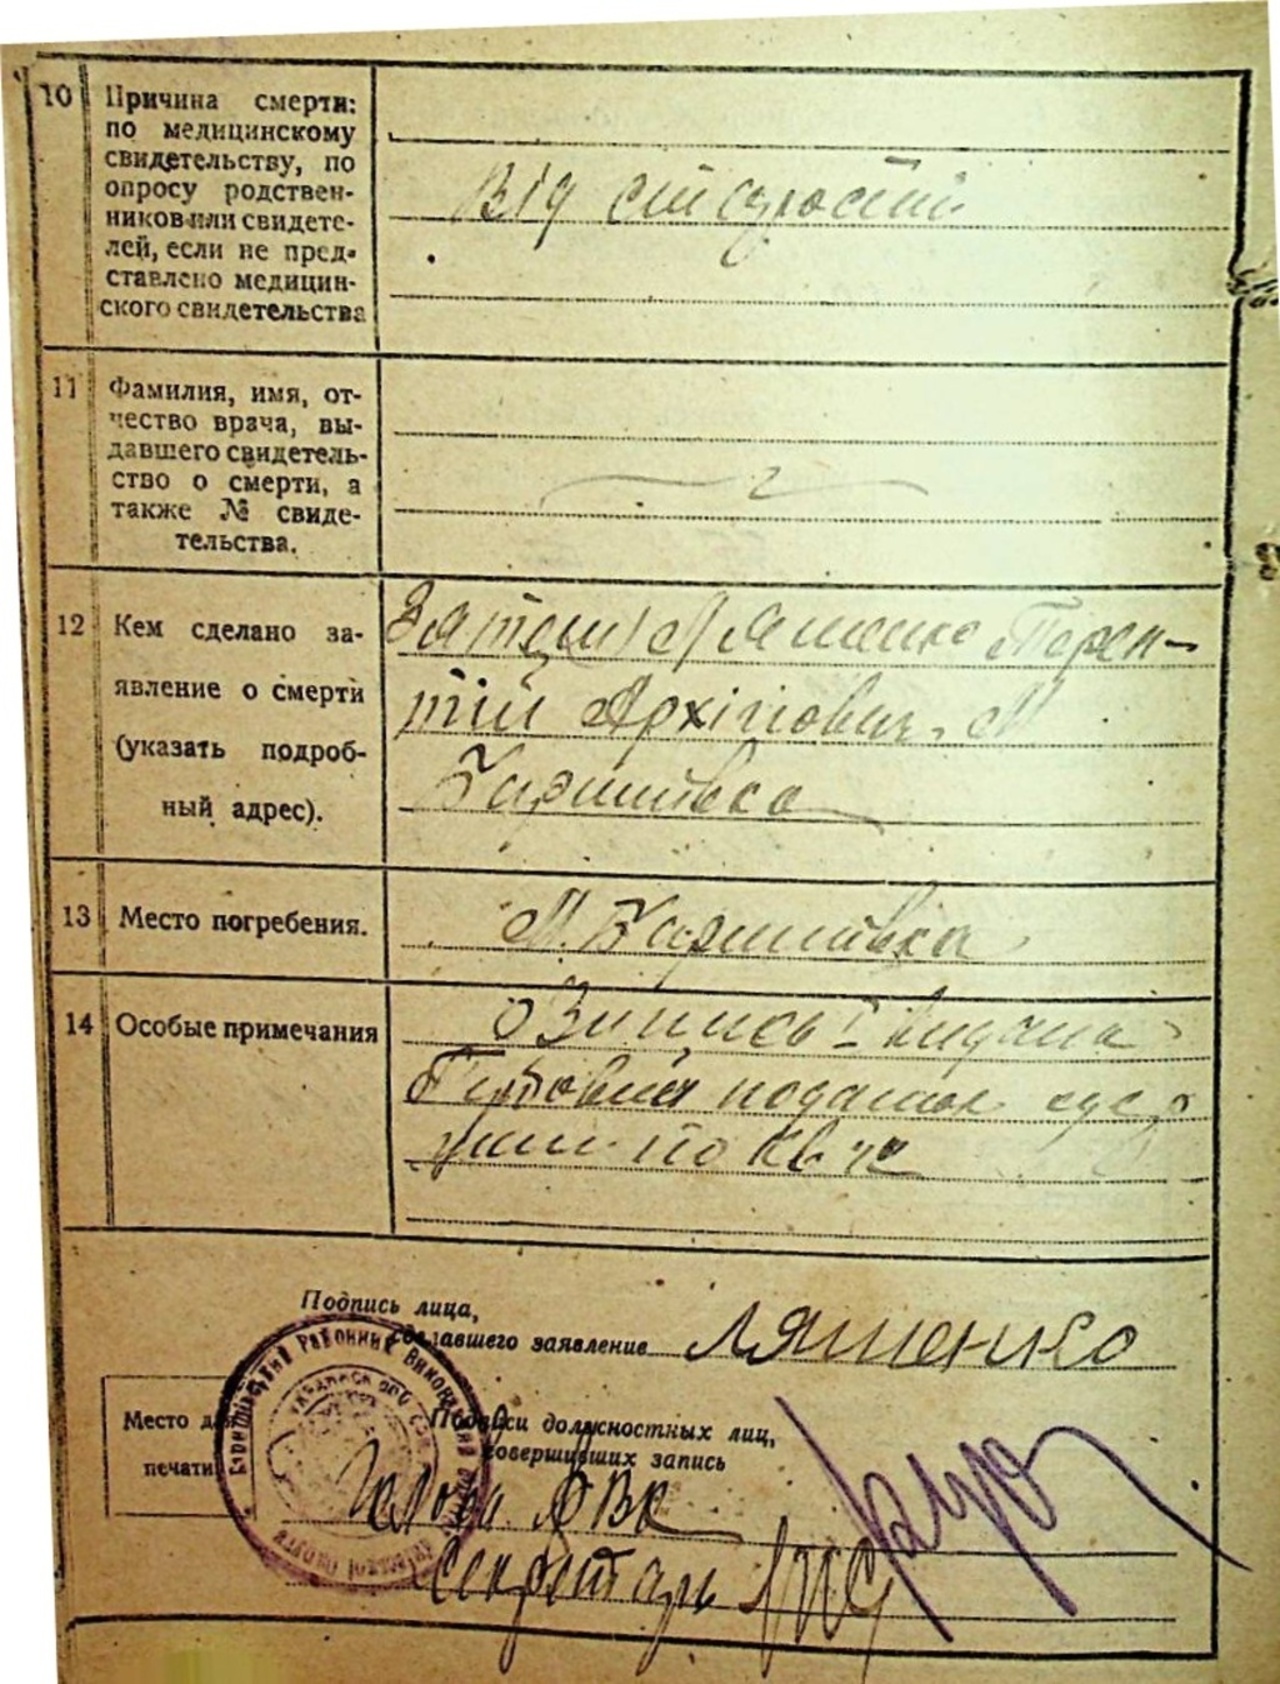 10
Причина смерти:
по медицинскому
свидетельству, по
опросу родствен-
ников или свидете-
лей, если не пред-
ставлено медицин-
ского свидетельства
Від старости
11
Фамилия, имя, от-
чество врача, вы-
давшего свидетель-
ство о смерти, а
также № свиде-
тельства.
12
Кем сделано за-
явление о смерти
(указать подроб-
ный адрес).
Ляшенко Терен-
тій Архипович, М
13
Место погребения.
М.
14
Особые примечания
видана
Гербовий податок
по кв.
Подпись лица,
сделавшего заявление Ляшенко
Место для
печати
Подписи должностных лиц,
совершивших запись
Голова
Секретарь
Районний Виконавчий